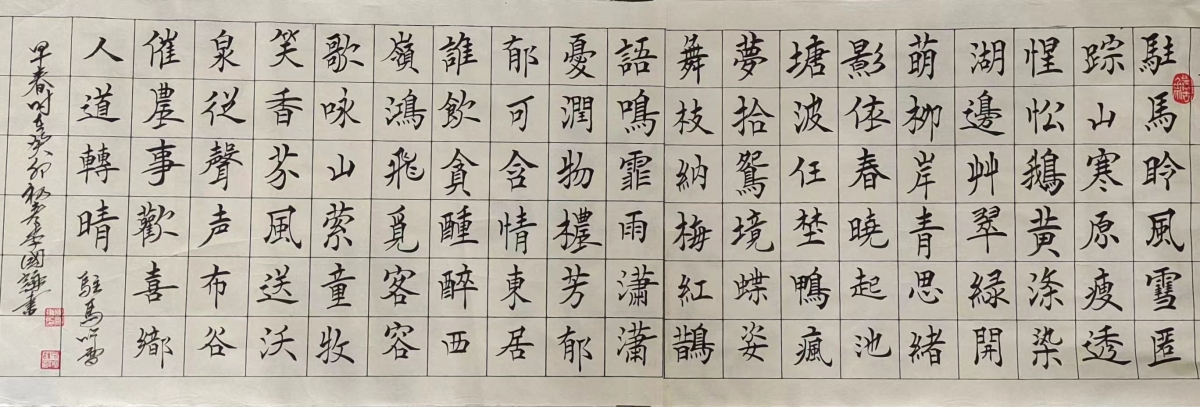 駐馬昤風雪匿
踪山寒原瘦透
惺忪鵝黃涤染
湖邊艸翠緑開
萌栁岸青思緒
影依春曉起池
塘波任埜鴨瘋
夢拾鴛境蝶姿
舞枝納梅紅鵲
語鳴霏雨瀟瀟
憂潤物禮芳郁
郁可含情東居
誰飲貪醺醉西
嶺鴻飛覓客容
歌咏山萦童牧
笑香芬風送沃
泉從聲声布谷
催農事歡喜鄉
人道轉晴 駐馬
早春时在癸卯初春李國書